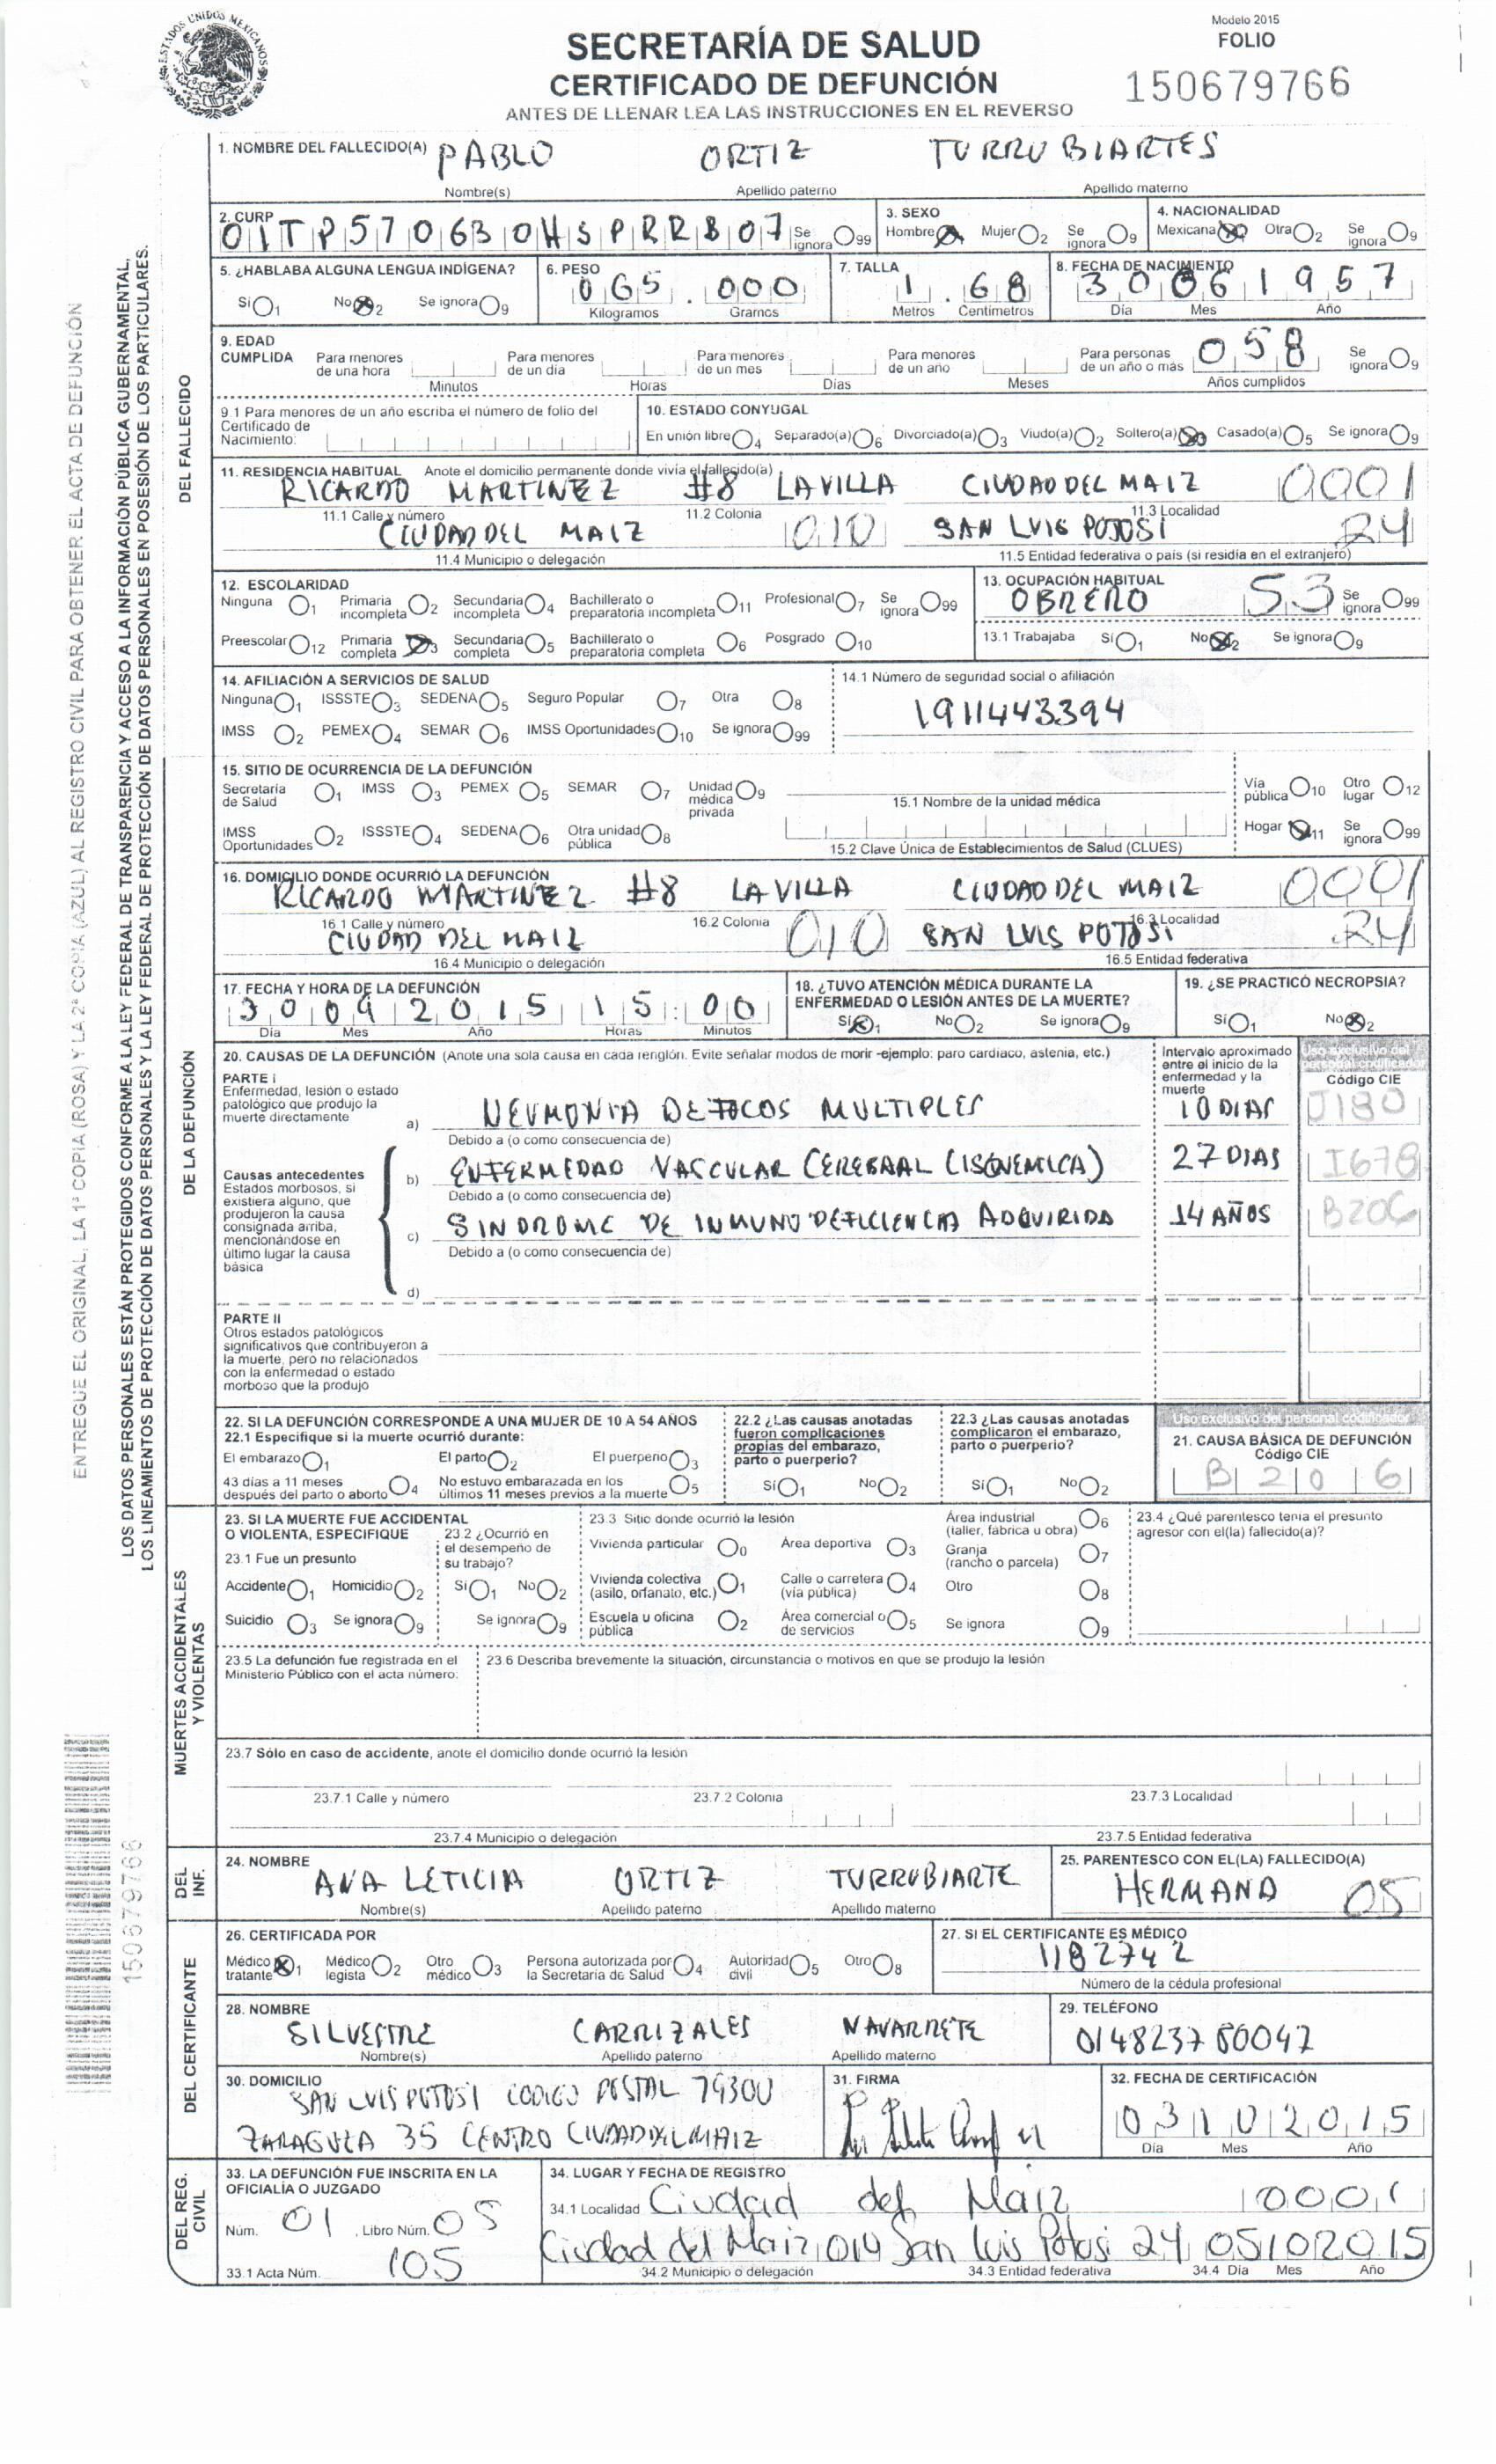 Modelo 2015
SECRETARÍA DE SALUD
FOLIO
CERTIFICADO DE DEFUNCIÓN
150679766
ANTES DE LLENAR LEA LAS INSTRUCCIONES EN EL REVERSO
ESTADOS UNIDOS MEXICANOS
ENTREGUE EL ORIGINAL, LA 1ª COPIA (ROSA) Y LA 2ª COPIA (AZUL) AL REGISTRO CIVIL PARA OBTENER EL ACTA DE DEFUNCIÓN
LOS DATOS PERSONALES ESTÁN PROTEGIDOS CONFORME A LA LEY FEDERAL DE TRANSPARENCIA Y ACCESO A LA INFORMACIÓN PÚBLICA GUBERNAMENTAL,
LOS LINEAMIENTOS DE PROTECCIÓN DE DATOS PERSONALES Y LA LEY FEDERAL DE PROTECCIÓN DE DATOS PERSONALES EN POSESIÓN DE LOS PARTICULARES.
150679766
DEL FALLECIDO
1. NOMBRE DEL FALLECIDO(A) PABLO ORTIZ TURRUBIARTES
Nombre(s) Apellido paterno Apellido materno
2. CURP OITP570630HSPRRB07 Se ignora 99
3. SEXO Hombre Mujer 2 Se ignora 9
4. NACIONALIDAD Mexicana Otra 2 Se ignora 9
5. ¿HABLABA ALGUNA LENGUA INDÍGENA? Sí 1 No 2 Se ignora 9
6. PESO 065 . 000 Kilogramos Gramos
7. TALLA 1 . 68 Metros Centímetros
8. FECHA DE NACIMIENTO 30 06 1957 Día Mes Año
9. EDAD CUMPLIDA Para menores de una hora Minutos Para menores de un día Horas Para menores de un mes Días Para menores de un año Meses Para personas de un año o más 058 Años cumplidos Se ignora 9
9.1 Para menores de un año escriba el número de folio del Certificado de Nacimiento:
10. ESTADO CONYUGAL
En unión libre 4 Separado(a) 6 Divorciado(a) 3 Viudo(a) 2 Soltero(a) Casado(a) 5 Se ignora 9
11. RESIDENCIA HABITUAL Anote el domicilio permanente donde vivía el fallecido(a)
RICARDO MARTINEZ #8 LA VILLA CIUDAD DEL MAIZ 0001
11.1 Calle y número 11.2 Colonia 11.3 Localidad
CIUDAD DEL MAIZ 010 SAN LUIS POTOSI 24
11.4 Municipio o delegación 11.5 Entidad federativa o país (si residía en el extranjero)
12. ESCOLARIDAD
Ninguna 1 Primaria incompleta 2 Secundaria incompleta 4 Bachillerato o preparatoria incompleta 11 Profesional 7 Se ignora 99
Preescolar 12 Primaria completa 3 Secundaria completa 5 Bachillerato o preparatoria completa 6 Posgrado 10
13. OCUPACIÓN HABITUAL OBRERO 53 Se ignora 99
13.1 Trabajaba Sí 1 No 2 Se ignora 9
14. AFILIACIÓN A SERVICIOS DE SALUD
Ninguna 1 ISSSTE 3 SEDENA 5 Seguro Popular 7 Otra 8
IMSS 2 PEMEX 4 SEMAR 6 IMSS Oportunidades 10 Se ignora 99
14.1 Número de seguridad social o afiliación
1911443394
DE LA DEFUNCIÓN
15. SITIO DE OCURRENCIA DE LA DEFUNCIÓN
Secretaría de Salud 1 IMSS 3 PEMEX 5 SEMAR 7 Unidad médica privada 9
IMSS Oportunidades 2 ISSSTE 4 SEDENA 6 Otra unidad pública 8
15.1 Nombre de la unidad médica
15.2 Clave Única de Establecimientos de Salud (CLUES)
Vía pública 10 Otro lugar 12
Hogar 11 Se ignora 99
16. DOMICILIO DONDE OCURRIÓ LA DEFUNCIÓN
RICARDO MARTINEZ #8 LA VILLA CIUDAD DEL MAIZ 0001
16.1 Calle y número 16.2 Colonia 16.3 Localidad
CIUDAD DEL MAIZ 010 SAN LUIS POTOSI 24
16.4 Municipio o delegación 16.5 Entidad federativa
17. FECHA Y HORA DE LA DEFUNCIÓN
30 09 2015 15:00
Día Mes Año Horas Minutos
18. ¿TUVO ATENCIÓN MÉDICA DURANTE LA ENFERMEDAD O LESIÓN ANTES DE LA MUERTE?
Sí 1 No 2 Se ignora 9
19. ¿SE PRACTICÓ NECROPSIA?
Sí 1 No 2
20. CAUSAS DE LA DEFUNCIÓN (Anote una sola causa en cada renglón. Evite señalar modos de morir -ejemplo: paro cardiaco, astenia, etc.)
Intervalo aproximado entre el inicio de la enfermedad y la muerte
Uso exclusivo del personal codificador
Código CIE
PARTE I
Enfermedad, lesión o estado patológico que produjo la muerte directamente
a) NEUMONIA DE FOCOS MULTIPLES 10 DIAS J180
Debido a (o como consecuencia de)
Causas antecedentes
Estados morbosos, si existiera alguno, que produjeron la causa consignada arriba, mencionándose en último lugar la causa básica
b) ENFERMEDAD VASCULAR CEREBRAL (ISQUEMICA) 27 DIAS I678
Debido a (o como consecuencia de)
c) SINDROME DE INMUNODEFICIENCIA ADQUIRIDA 14 AÑOS B206
Debido a (o como consecuencia de)
d)
PARTE II
Otros estados patológicos significativos que contribuyeron a la muerte, pero no relacionados con la enfermedad o estado morboso que la produjo
22. SI LA DEFUNCIÓN CORRESPONDE A UNA MUJER DE 10 A 54 AÑOS
22.1 Especifique si la muerte ocurrió durante:
El embarazo 1 El parto 2 El puerperio 3
43 días a 11 meses después del parto o aborto 4 No estuvo embarazada en los últimos 11 meses previos a la muerte 5
22.2 ¿Las causas anotadas fueron complicaciones propias del embarazo, parto o puerperio?
Sí 1 No 2
22.3 ¿Las causas anotadas complicaron el embarazo, parto o puerperio?
Sí 1 No 2
Uso exclusivo del personal codificador
21. CAUSA BÁSICA DE DEFUNCIÓN
Código CIE
B 2 0 6
MUERTES ACCIDENTALES Y VIOLENTAS
23. SI LA MUERTE FUE ACCIDENTAL O VIOLENTA, ESPECIFIQUE
23.1 Fue un presunto
Accidente 1 Homicidio 2
Suicidio 3 Se ignora 9
23.2 ¿Ocurrió en el desempeño de su trabajo?
Sí 1 No 2
Se ignora 9
23.3 Sitio donde ocurrió la lesión
Vivienda particular 0 Área deportiva 3 Área industrial (taller, fábrica u obra) 6
Vivienda colectiva (asilo, orfanato, etc.) 1 Calle o carretera (vía pública) 4 Granja (rancho o parcela) 7
Escuela u oficina pública 2 Área comercial o de servicios 5 Otro 8
Se ignora 9
23.4 ¿Qué parentesco tenía el presunto agresor con el(la) fallecido(a)?
23.5 La defunción fue registrada en el Ministerio Público con el acta número:
23.6 Describa brevemente la situación, circunstancia o motivos en que se produjo la lesión
23.7 Sólo en caso de accidente, anote el domicilio donde ocurrió la lesión
23.7.1 Calle y número 23.7.2 Colonia 23.7.3 Localidad
23.7.4 Municipio o delegación 23.7.5 Entidad federativa
DEL INF.
24. NOMBRE ANA LETICIA ORTIZ TURRUBIARTE
Nombre(s) Apellido paterno Apellido materno
25. PARENTESCO CON EL(LA) FALLECIDO(A)
HERMANA 05
DEL CERTIFICANTE
26. CERTIFICADA POR
Médico tratante 1 Médico legista 2 Otro médico 3 Persona autorizada por la Secretaría de Salud 4 Autoridad civil 5 Otro 8
27. SI EL CERTIFICANTE ES MÉDICO
1182742
Número de la cédula profesional
28. NOMBRE SILVESTRE CARRIZALES NAVARRETE
Nombre(s) Apellido paterno Apellido materno
29. TELÉFONO
0148237 80047
30. DOMICILIO
SAN LUIS POTOSI CODIGO POSTAL 79300
ZARAGOZA 35 CENTRO CIUDAD DEL MAIZ
31. FIRMA
32. FECHA DE CERTIFICACIÓN
03 10 2015
Día Mes Año
DEL REG. CIVIL
33. LA DEFUNCIÓN FUE INSCRITA EN LA OFICIALÍA O JUZGADO
Núm. 01 , Libro Núm. 05
33.1 Acta Núm. 105
34. LUGAR Y FECHA DE REGISTRO
34.1 Localidad Ciudad del Maiz 0001
Ciudad del Maiz 010 San Luis Potosi 24 05 10 2015
34.2 Municipio o delegación 34.3 Entidad federativa 34.4 Día Mes Año